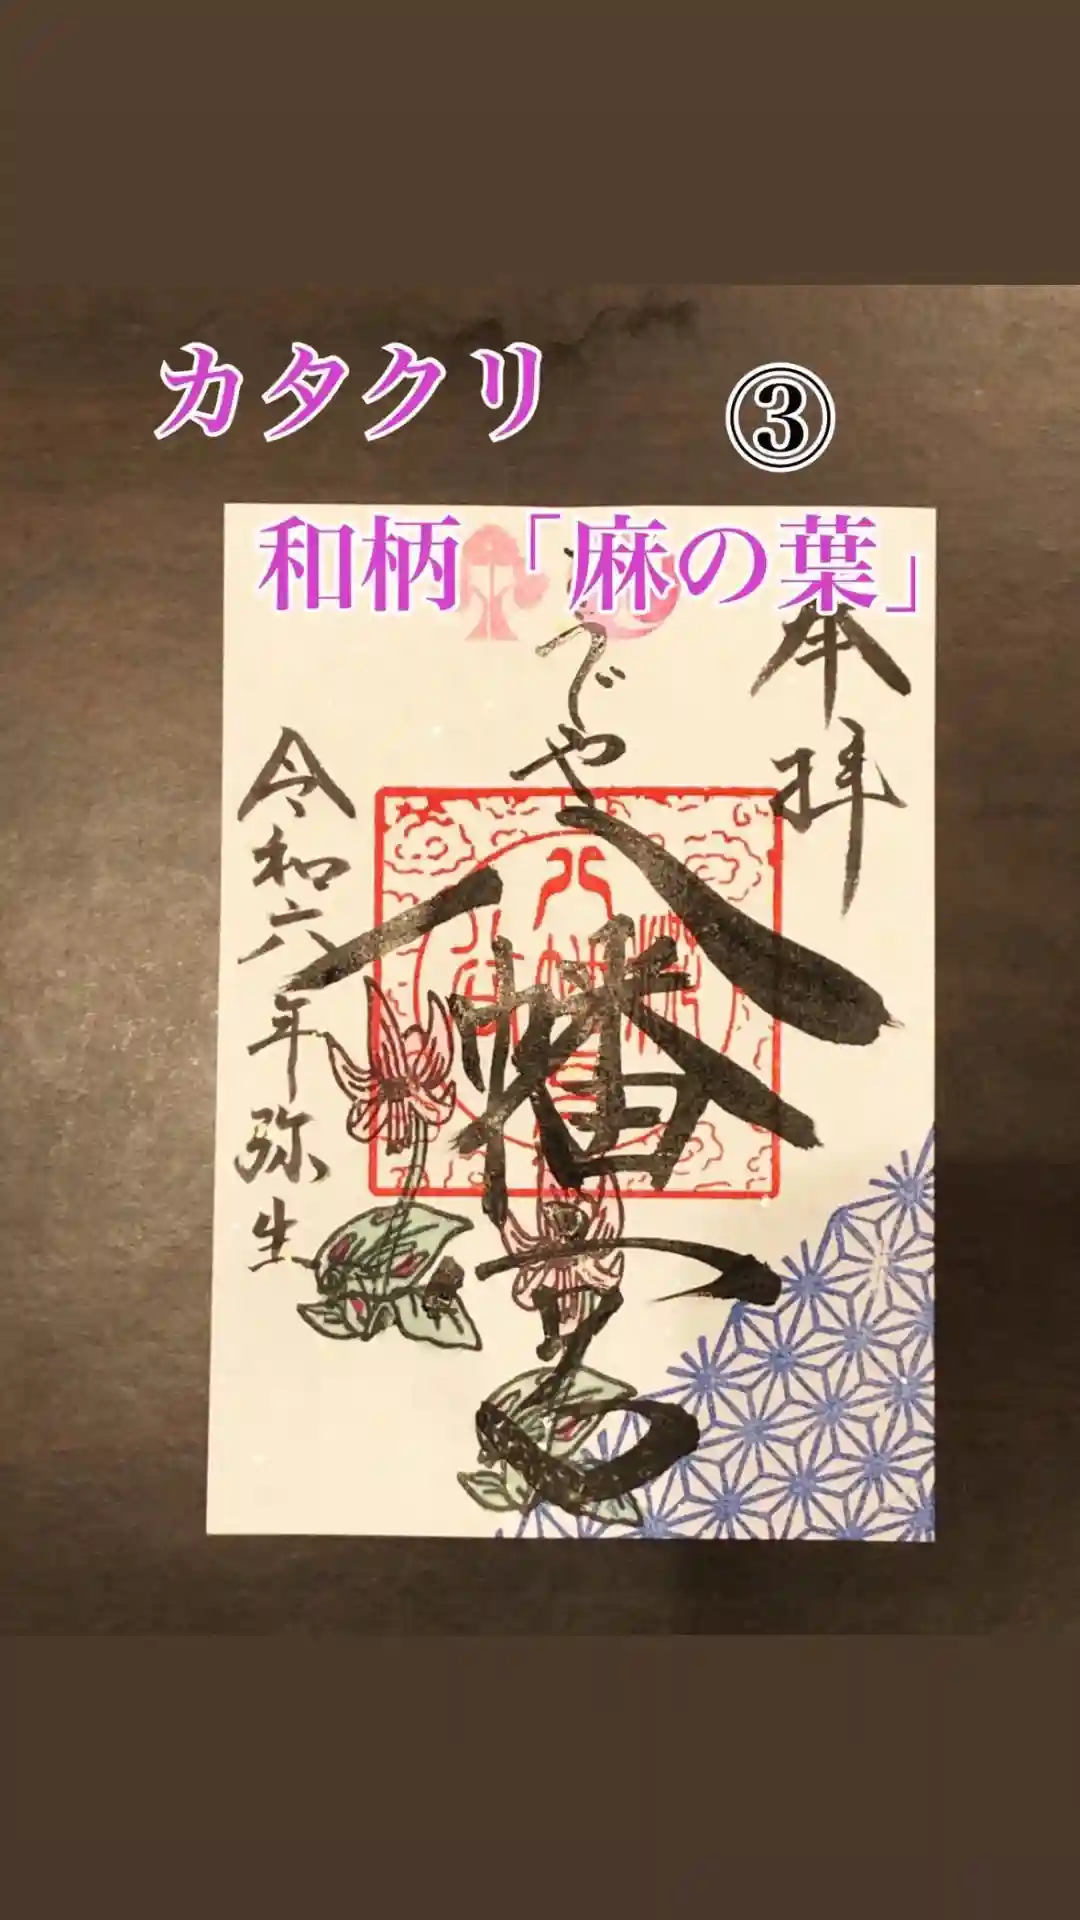 カタクリ
③
和柄「麻の葉」
奉拝
でや
八幡宮
令和六年弥生